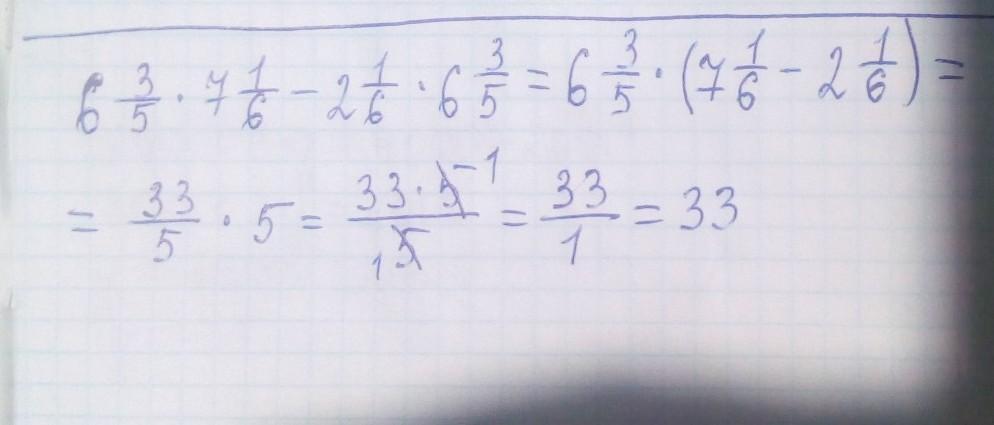 6 3/5 · 7 1/6 − 2 1/6 · 6 3/5 = 6 3/5 · (7 1/6 − 2 1/6) =
= 33/5 · 5 = 33 · 5 1 / 1 5 = 33/1 = 33